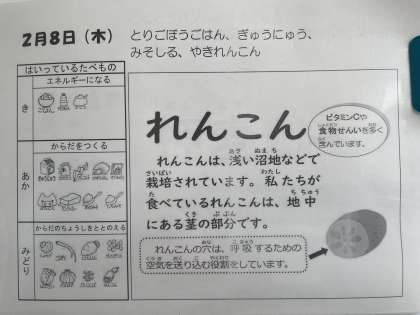 2月8日（木）
とりごぼうごはん、ぎゅうにゅう、
みそしる、やきれんこん
はいっているたべもの
エネルギーになる
き
からだをつくる
あか
からだのちょうしをととのえる
みどり
れんこん
ビタミンCや
食物せんいを多く
含んでいます。
れんこんは、浅い沼地などで
栽培されています。私たちが
食べているれんこんは、地中
にある茎の部分です。
れんこんの穴は、呼吸するための
空気を送り込む役割をしています。